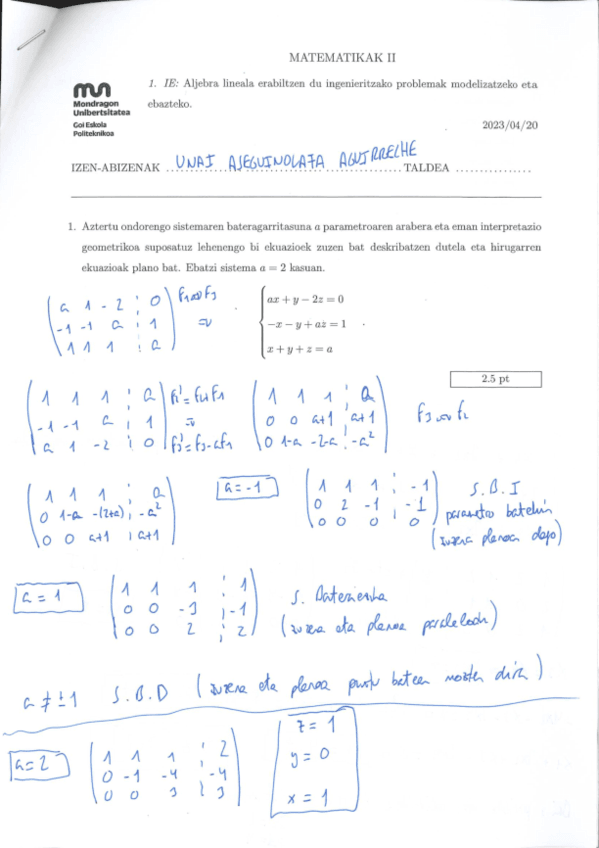 MATEMATIKAK II
1. IE: Aljebra lineala erabiltzen du ingenieritzako problemak modelizatzeko eta
ebazteko.
Mondragon
Unibertsitatea
Goi Eskola
Politeknikoa
2023/04/20
IZEN-ABIZENAK UNAI ASEGUINOLAZA AGUIRRECHE TALDEA
1. Aztertu ondorengo sistemaren bateragarritasuna a parametroaren arabera eta eman interpretazio
geometrikoa suposatuz lehenengo bi ekuazioek zuzen bat deskribatzen dutela eta hirugarren
ekuazioak plano bat. Ebatzi sistema a = 2 kasuan.
ax + y − 2z = 0
−x − y + az = 1
x + y + z = a
2.5 pt
a 1 -2 | 0
-1 -1 a | 1
1 1 1 | a
F1 <-> F3
1 1 1 | a
-1 -1 a | 1
a 1 -2 | 0
F2' = F2+F1
F3' = F3-aF1
1 1 1 | a
0 0 a+1 | a+1
0 1-a -2-a | -a²
F3 <-> F2
1 1 1 | a
0 1-a -(2+a) | -a²
0 0 a+1 | a+1
a = -1
1 1 1 | -1
0 2 -1 | -1
0 0 0 | 0
S.B.I
parametro batekin
(zuzena planoan dago)
a = 1
1 1 1 | 1
0 0 -3 | -1
0 0 2 | 2
S. Bateraezina
(zuzena eta planoa paraleloak)
a ≠ ±1 S.B.D (zuzena eta planoa puntu batean mozten dira)
a = 2
1 1 1 | 2
0 -1 -4 | -4
0 0 3 | 3
z = 1
y = 0
x = 1